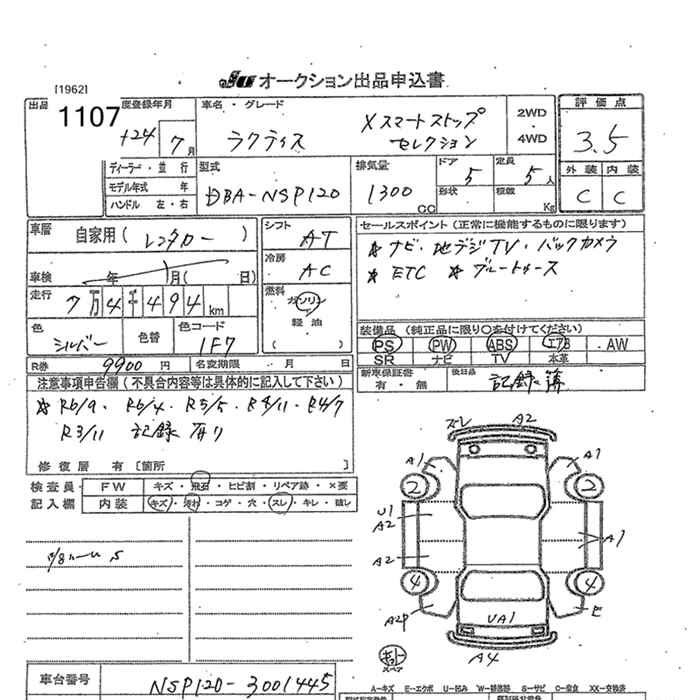 [1962]
JU オークション出品申込書
出品 1107 度登録年月 車名・グレード 2WD 評価点
H24 7月 ラクティス Xスマートストップ セレクション 4WD 3.5
ディーラー・並行 型式 排気量 ドア 定員 外装 内装
モデル年式 年 DBA-NSP120 1300 CC 5 5人 C C
ハンドル 左・右 形状 積載 Kg
車歴 自家用(レンタカー) シフト AT セールスポイント(正常に機能するものに限ります)
冷房 AC ☆ナビ・地デジTV・バックカメラ
車検 年 月( 日) ☆ETC ☆ブルートゥース
走行 7万4千494km 燃料 ガソリン
軽油
( )
色 シルバー 色替 色コード 1F7 装備品(純正品に限り○を付けてください)
PS PW ABS エアB AW
SR ナビ TV 本革
R券 9900円 名変期限 月 日
新車保証書 有・無 後日品 記録簿
注意事項申告欄(不具合内容等は具体的に記入して下さい)
☆R6/9・R6/4・R5/5・R4/11・R4/7
R3/11 記録有り
修復歴 有〔箇所 〕
検査員 FW キズ・飛石・ヒビ割・リペア跡・×要
記入欄 内装 キズ・汚れ・コゲ・穴・スレ・キレ・破し
ズレ A2
A1 A1
2 2
U1
A2 A1
A2
4 4
A2P E
UA1
A4
スペア
車台番号 NSP120-3001445
A-キズ E-エクボ U-凹み W-補修跡 S-サビ C-腐食 XX-交換済